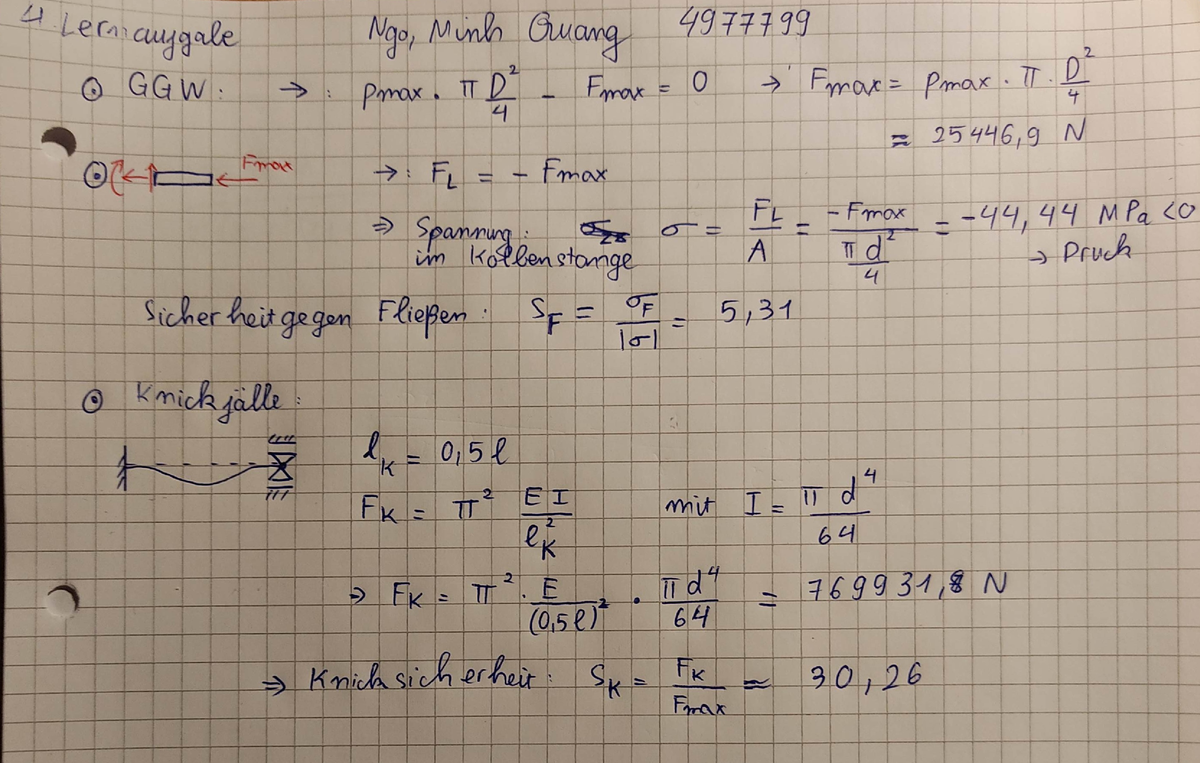 4 Lernaufgabe Ngo, Minh Quang 4977799
⊙ GGW: →: pmax · π D²/4 - Fmax = 0 → Fmax = pmax · π · D²/4
≈ 25446,9 N
⊙ Fmax →: FL = - Fmax
⇒ Spannung: σ = FL/A = -Fmax/(π d²/4) = -44,44 MPa <0
im Kolbenstange → Druck
Sicherheit gegen Fließen: SF = σF/|σ| = 5,31
⊙ Knickfälle:
lK = 0,5 l
FK = π² EI/lK² mit I = π d⁴/64
⇒ FK = π² · E/(0,5 l)² · π d⁴/64 = 769931,8 N
⇒ Knicksicherheit: SK = FK/Fmax ≈ 30,26